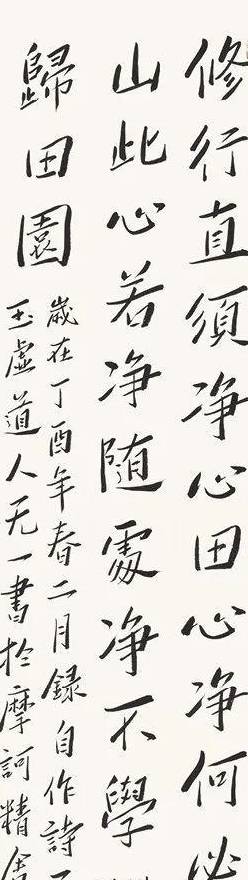 修行直須净心田心净何必
山此心若净随處净不學
歸田園
歲在丁酉年春二月録自作詩
玉虚道人无一書於摩訶精舍